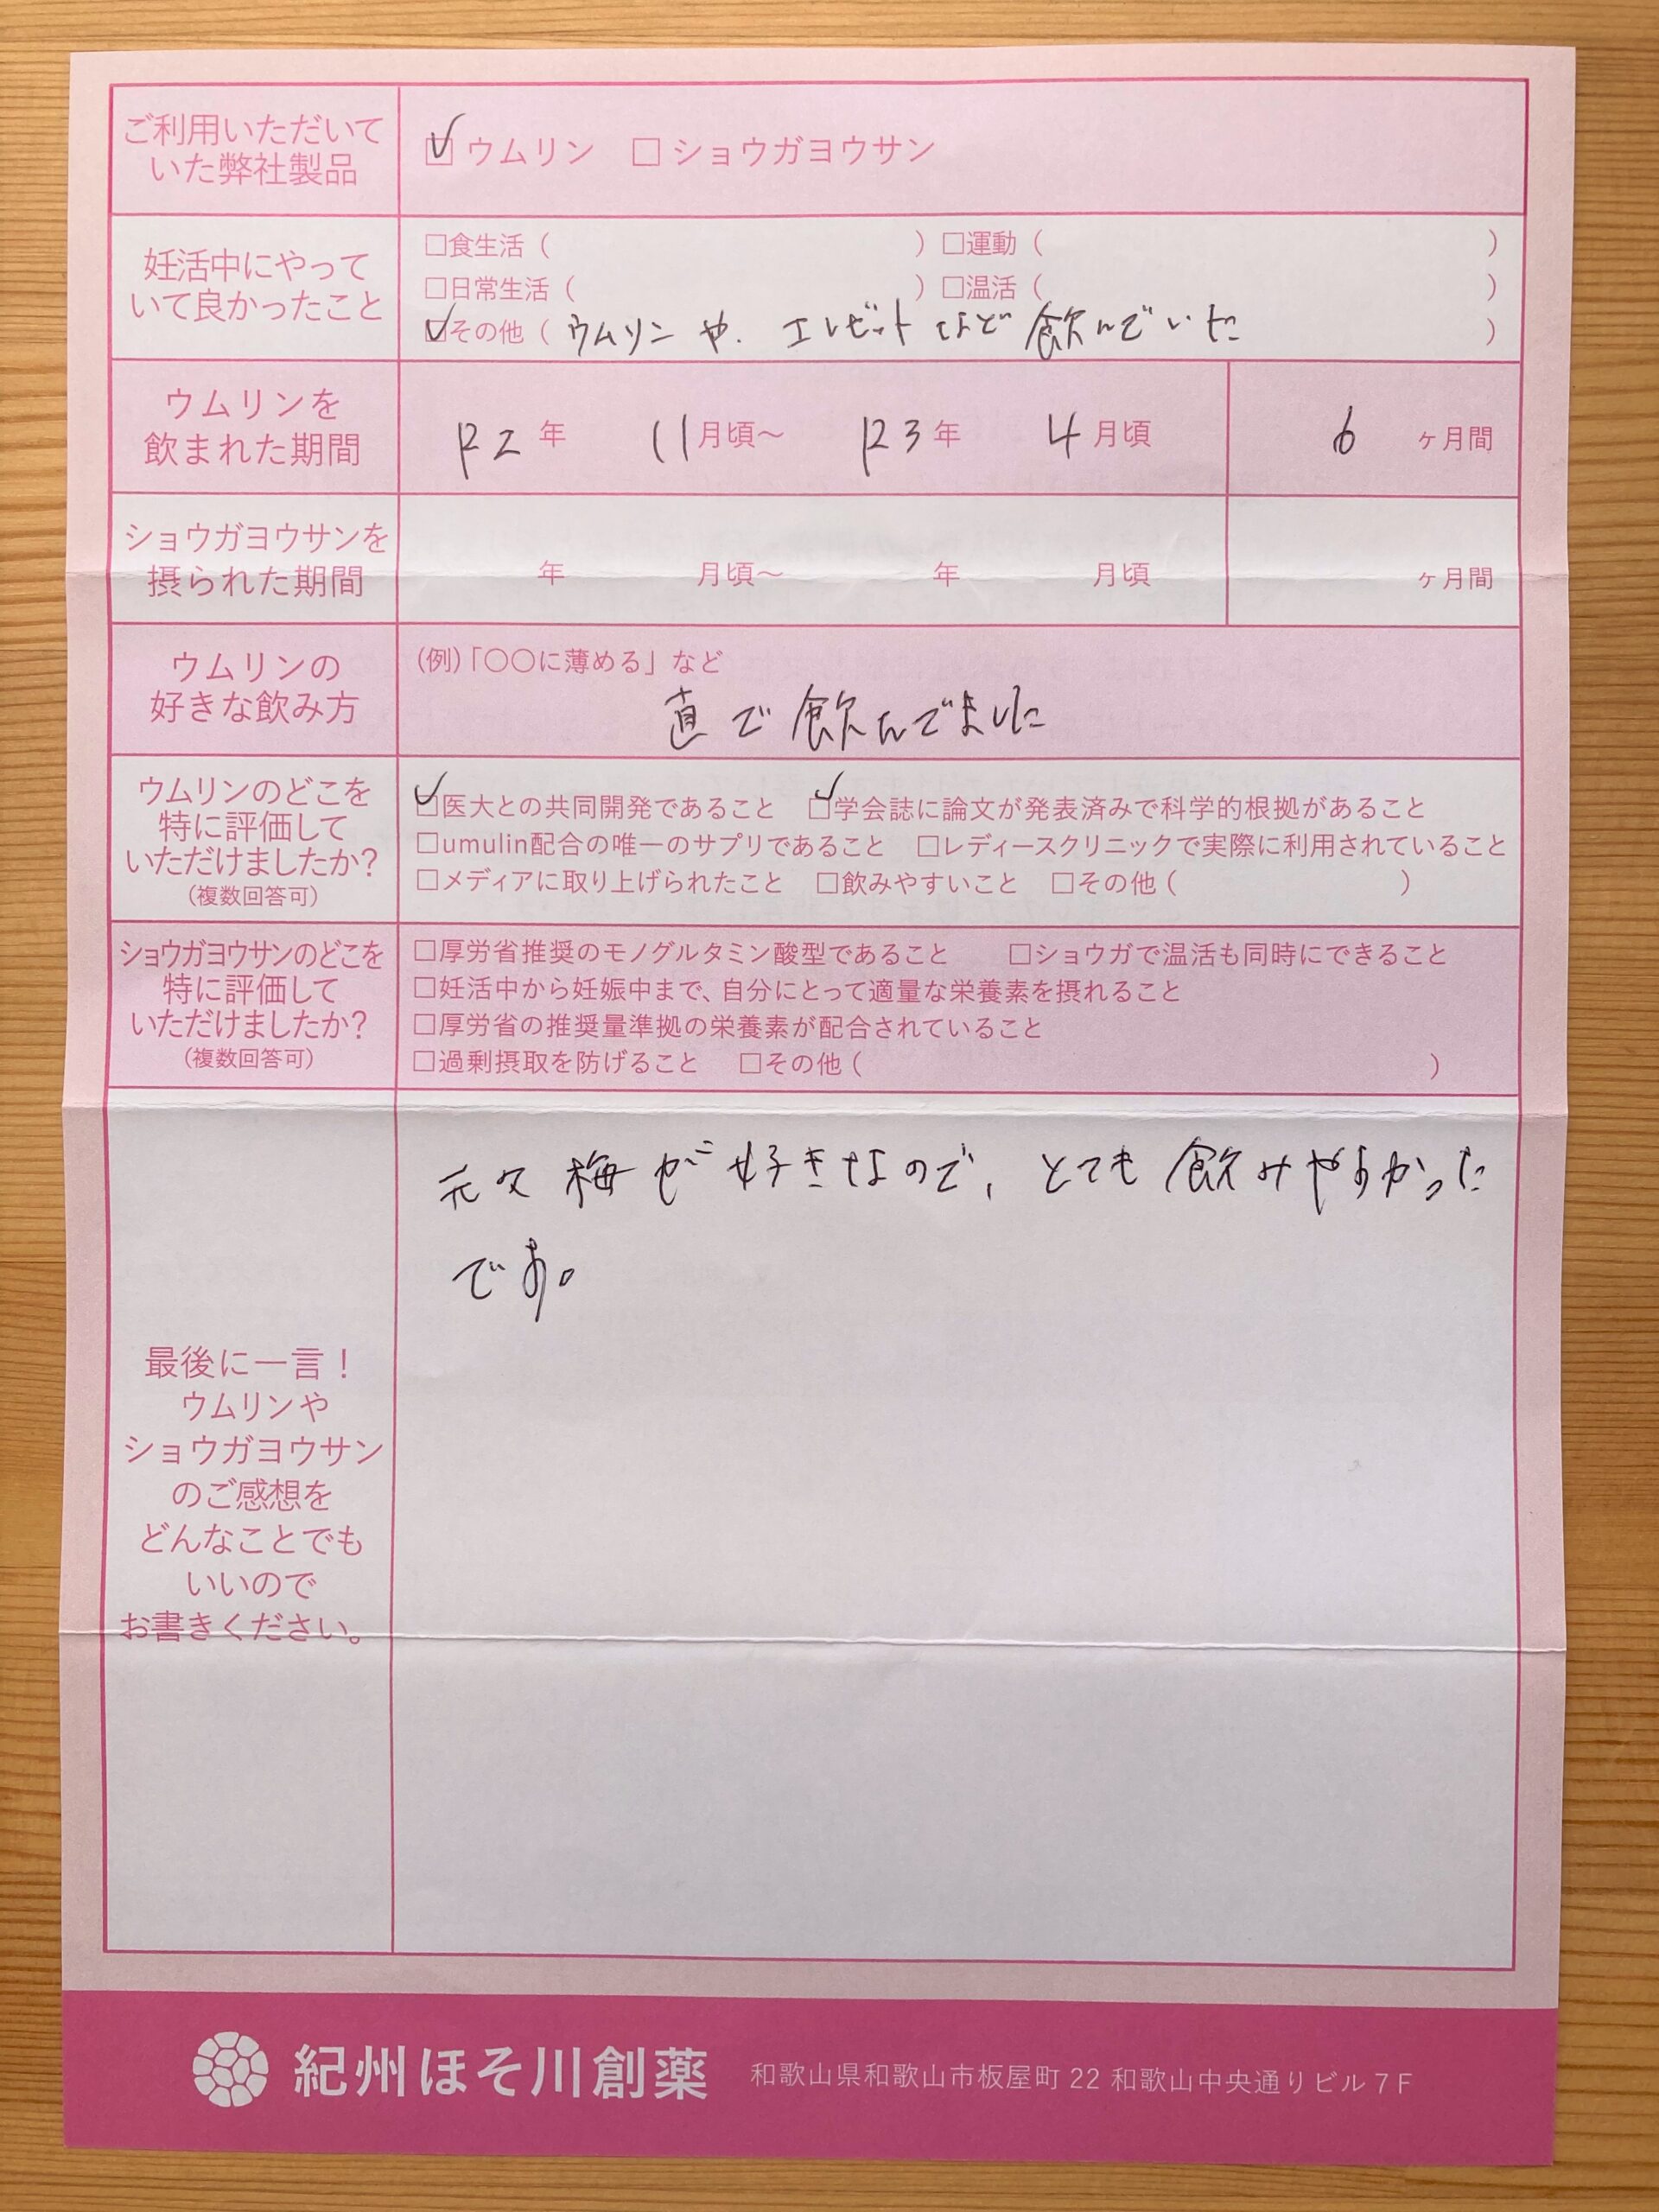 ご利用いただいて
いた弊社製品
☑ウムリン □ショウガヨウサン
妊活中にやって
いて良かったこと
□食生活（ ）□運動（ ）
□日常生活（ ）□温活（ ）
☑その他（ウムリンや、エレビットなど飲んでいた）
ウムリンを
飲まれた期間
R2年 11月頃～ R3年 4月頃 6ヶ月間
ショウガヨウサンを
摂られた期間
年 月頃～ 年 月頃 ヶ月間
ウムリンの
好きな飲み方
(例)「〇〇に薄める」など
直で飲んでました
ウムリンのどこを
特に評価して
いただけましたか？
(複数回答可)
☑医大との共同開発であること ☑学会誌に論文が発表済みで科学的根拠があること
□umulin配合の唯一のサプリであること □レディースクリニックで実際に利用されていること
□メディアに取り上げられたこと □飲みやすいこと □その他（ ）
ショウガヨウサンのどこを
特に評価して
いただけましたか？
(複数回答可)
□厚労省推奨のモノグルタミン酸型であること □ショウガで温活も同時にできること
□妊活中から妊娠中まで、自分にとって適量な栄養素を摂れること
□厚労省の推奨量準拠の栄養素が配合されていること
□過剰摂取を防げること □その他（ ）
最後に一言！
ウムリンや
ショウガヨウサン
のご感想を
どんなことでも
いいので
お書きください。
元々梅が好きなので、とても飲みやすかった
です。
紀州ほそ川創薬 和歌山県和歌山市板屋町 22 和歌山中央通りビル 7F